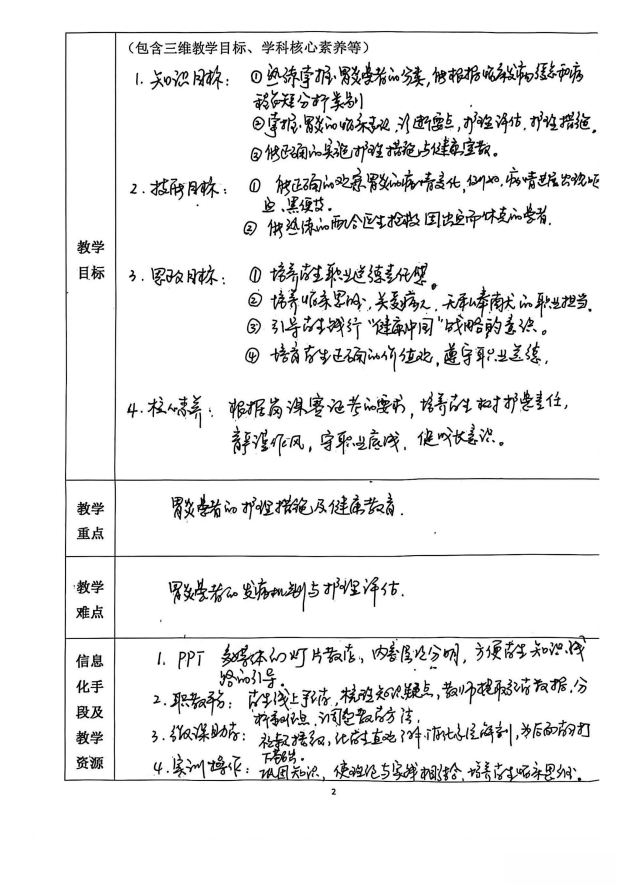 (包含三维教学目标、学科核心素养等)
教学
目标
1. 知识目标: ①熟练掌握胃炎患者的分类,能根据临床发病缓急和病
程长短分析类别
②掌握胃炎的临床表现、诊断要点,护理评估、护理措施。
③能正确的实施护理措施与健康宣教。
2. 技能目标: ① 能正确的观察胃炎的病情变化,例如,病情进展出现呕
血、黑便等。
② 能熟练的配合医生抢救因出血而休克的患者.
3. 思政目标: ① 培养学生职业道德责任感。
② 培养临床思维,关爱病人,无私奉献的职业担当.
③ 引导学生践行“健康中国”战略的意识。
④ 培育学生正确的价值观,遵守职业道德,
4. 核心素养: 根据岗课赛证考的要求,培养学生和护患责任,
严谨作风,守职业底线,健成长意识。
教学
重点
胃炎患者的护理措施及健康教育.
教学
难点
胃炎患者的发病机制与护理评估.
信息
化手
段及
教学
资源
1. PPT 多媒体幻灯片教学,内容层次分明,方便学生知识线
路的引导。
2. 职教云: 学生线上预学,检验知识疑点,教师提取预学数据,分
析重难点,调整教学方法,
3. 微课助学: 化学生直观了解消化系统解剖,为后面学习打
下基础。
4. 实训操作: 巩固知识,使理论与实践相结合,培养学生临床思维。
2